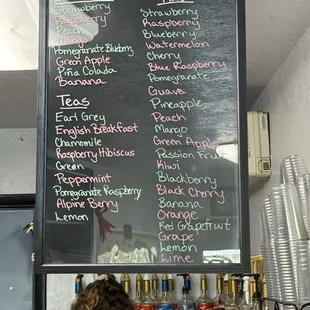 Strawberry
Raspberry
Peach
Mango
Pomegranate Blueberry
Green Apple
Piña Colada
Banana
Teas
Earl Grey
English Breakfast
Chamomile
Raspberry Hibiscus
Green
Peppermint
Pomegranate Raspberry
Alpine Berry
Lemon
Strawberry
Raspberry
Blueberry
Watermelon
Cherry
Blue Raspberry
Pomegranate
Guava
Pineapple
Peach
Mango
Green Apple
Passion Fruit
Kiwi
Blackberry
Black Cherry
Banana
Orange
Red Grapefruit
Grape
Lemon
Lime